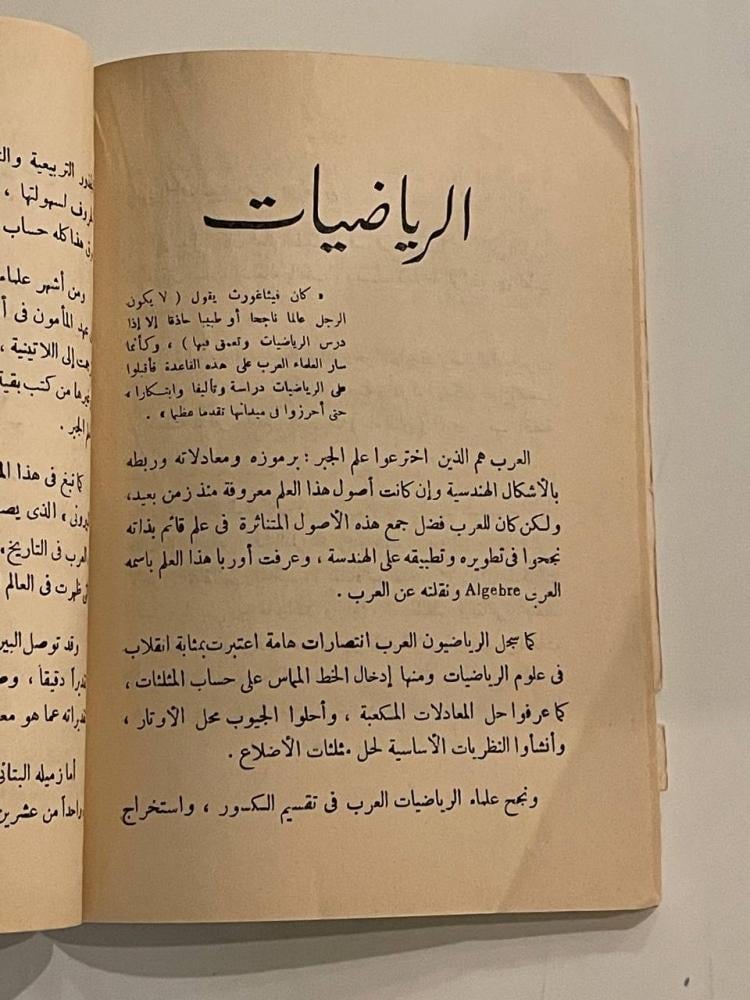 الرياضيات
« كان فيثاغورث يقول ( لا يكون
الرجل عالما ناجحا أو طبيبا حاذقا إلا إذا
درس الرياضيات وتعمق فيها ) ، وكأنما
سار العلماء العرب على هذه القاعدة فأقبلوا
على الرياضيات دراسة وتأليفا وابتكارا ،
حتى أحرزوا فى ميدانها تقدما عظيما » .
العرب هم الذين اخترعوا علم الجبر : برموزه ومعادلاته وربطه
بالأشكال الهندسية وإن كانت أصول هذا العلم معروفة منذ زمن بعيد،
ولكن كان للعرب فضل جمع هذه الأصول المتناثرة فى علم قائم بذاته
نجحوا فى تطويره وتطبيقه على الهندسة ، وعرفت أوربا هذا العلم باسمه
العربى Algebre ونقلته عن العرب .
كما سجل الرياضيون العرب انتصارات هامة اعتبرت بمثابة انقلاب
فى علوم الرياضيات ومنها إدخال الخط المماس على حساب المثلثات ،
كما عرفوا حل المعادلات المكعبة ، وأحلوا الجيوب محل الأوتار ،
وأنشأوا النظريات الأساسية لحل مثلثات الأضلاع .
ونجح علماء الرياضيات العرب فى تقسيم الكسور ، واستخراج
التربيعية
لسهولتها ،
هذا كله حساب
ومن أشهر علماء
المأمون فى
إلى اللاتينية ،
من كتب بقية
الجبر .
كما نبغ فى هذا
الذى
العرب فى التاريخ،
ظهرت فى العالم
وقد توصل
دقيقاً ،
عما هو
أما زميله
من عشرين